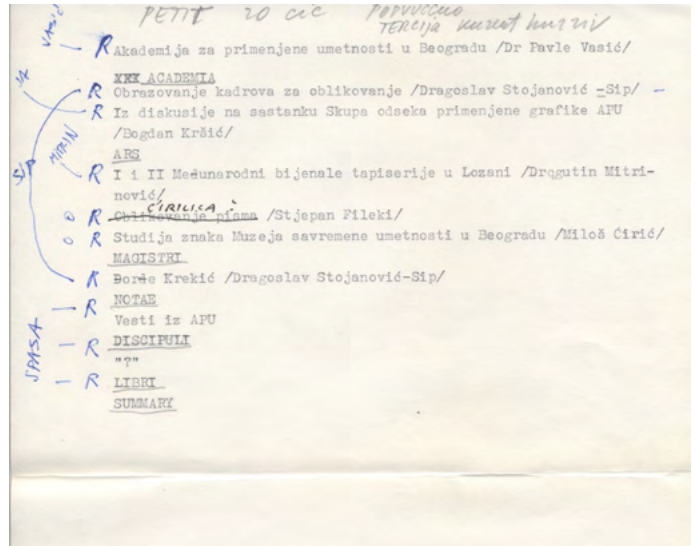 PETIT 20 cic PODVUČENO
TERCIJA kurent kurziv
VASIĆ
R Akademija za primenjene umetnosti u Beogradu /Dr Pavle Vasić/
XXX ACADEMIA
R Obrazovanje kadrova za oblikovanje /Dragoslav Stojanović -Sip/ -
R Iz diskusije na sastanku Skupa odseka primenjene grafike APU
/Bogdan Kršić/
ARS
MITRIN
SIP
R I i II Međunarodni bijenale tapiserije u Lozani /Drqgutin Mitri-
nović/
ĆIRILICA
o R Oblikovanje pisma /Stjepan Fileki/
o R Studija znaka Muzeja savremene umetnosti u Beogradu /Miloš Ćirić/
MAGISTRI
R Đorđe Krekić /Dragoslav Stojanović-Sip/
- R NOTAE
Vesti iz APU
SPASA
- R DISCIPULI
"?"
- R LIBRI
SUMMARY